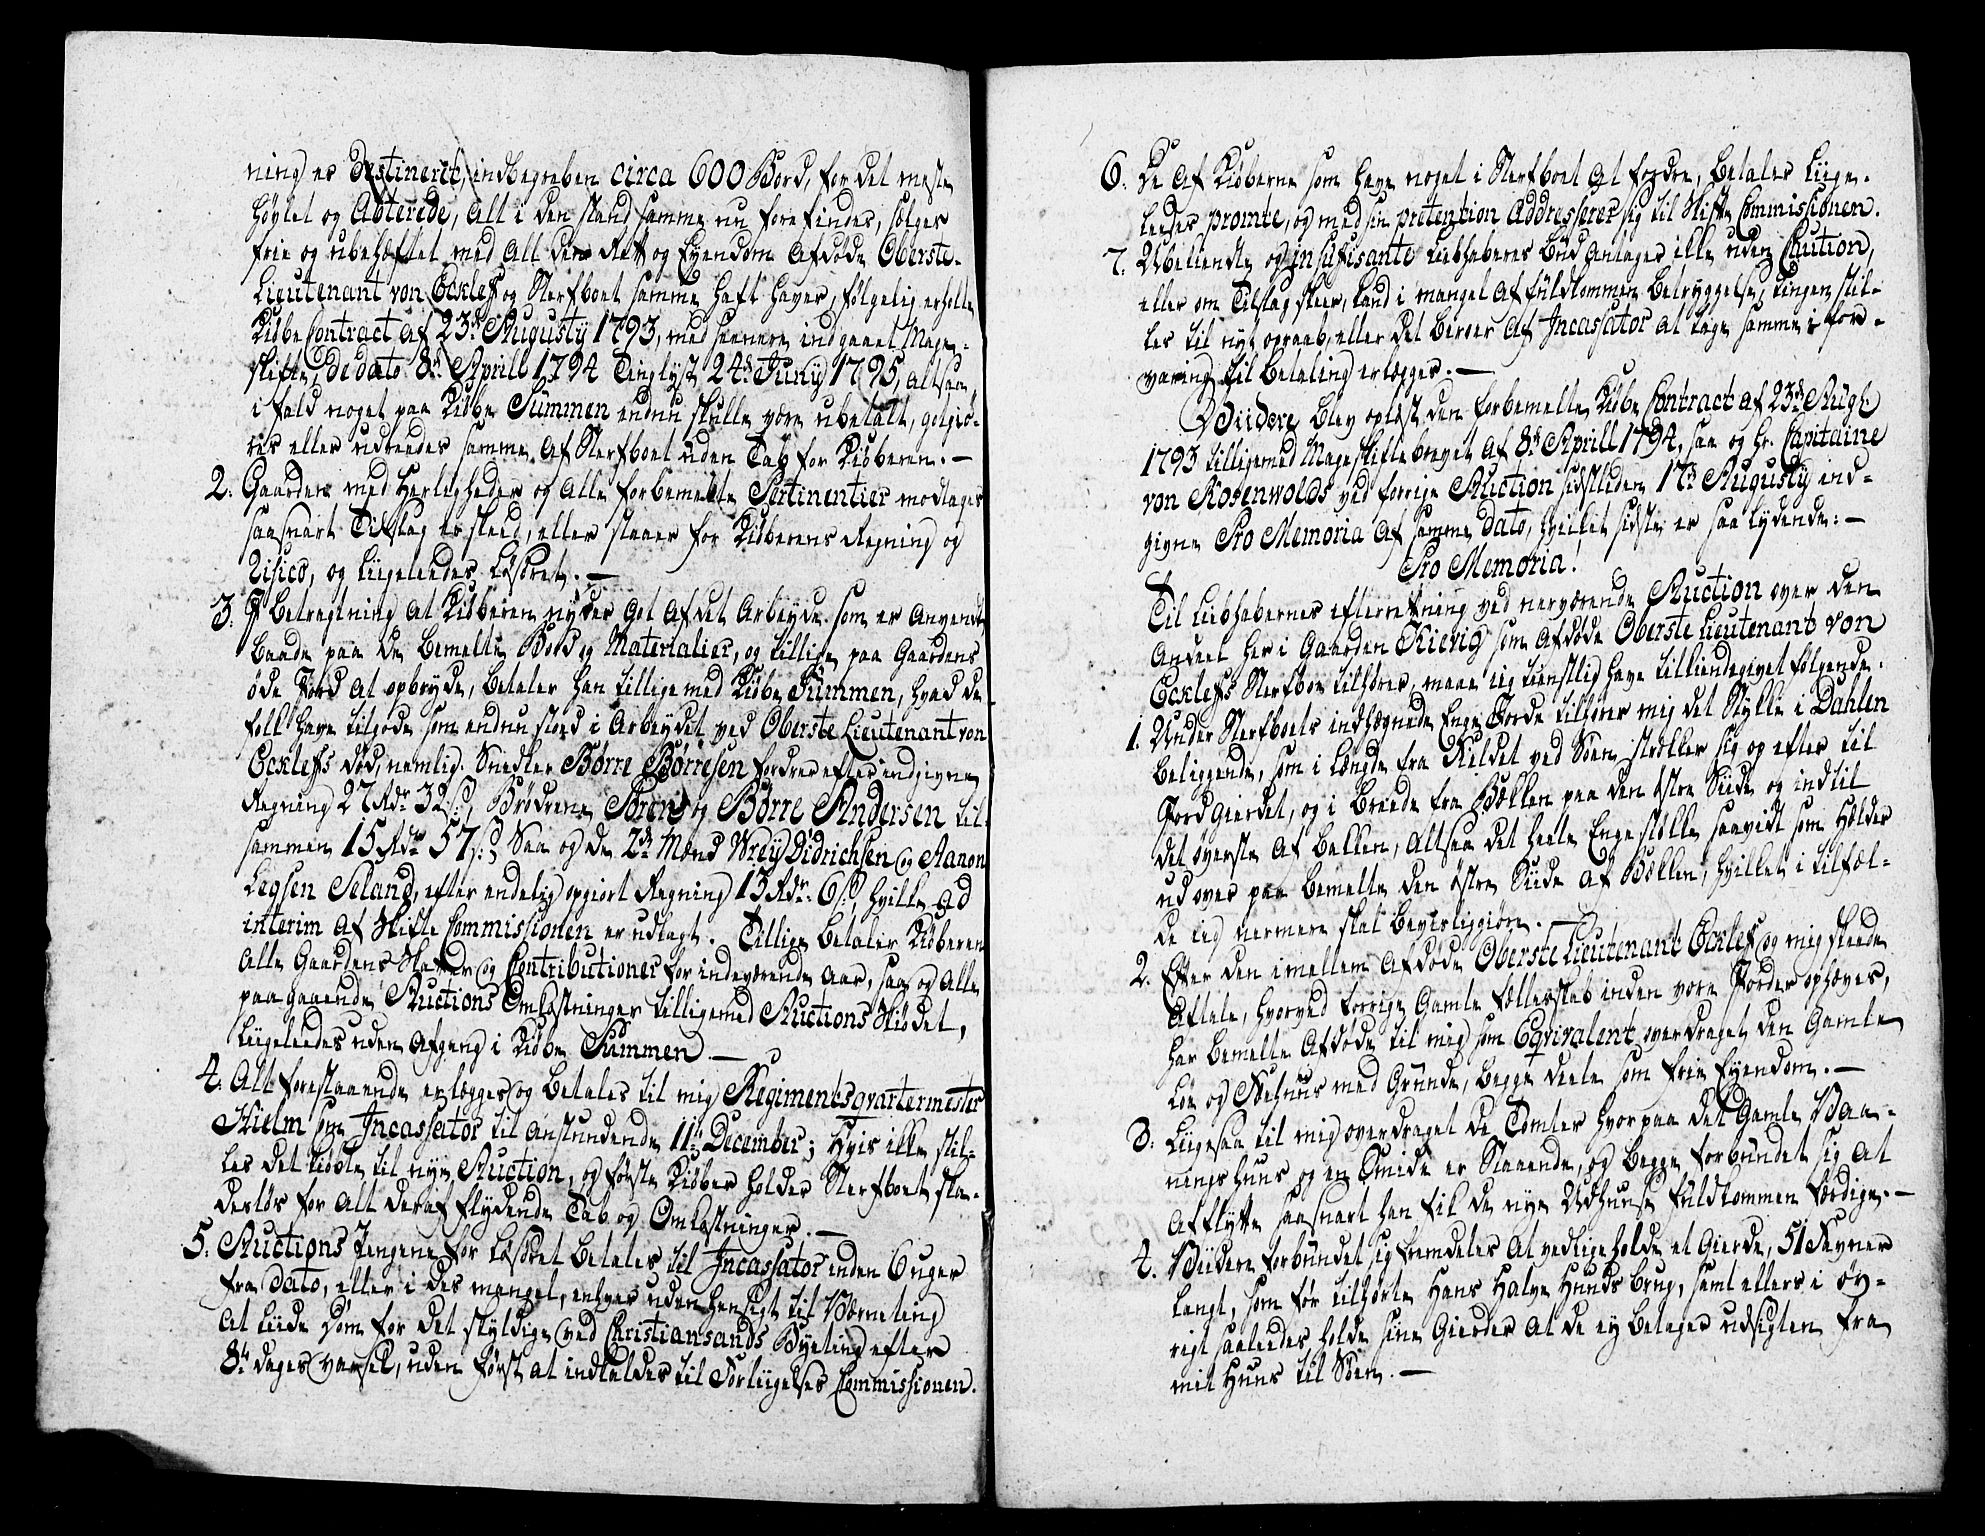 ning er Destineret, indbegreben circa 600 Bord, for det meste
høvlet og Abterede, alt i den stand samme nu forefindes, sælges
frie og ubehæftet med all den Ret og Eyendom afdøde Oberste-
Lieutenant von Eckleff og Sterfboet samme haft haver, følgelig erholte
Kiøbe Contract af 23de Augusty 1793, med senere indgaaet Mage-
skifte, de dato 8de Aprill 1794 Tinglyst 24de Juny 1795, altsaa
i fald noget paa Kiøbe Summen endnu skulle være ubetalt, godgiø-
res eller udreedes samme af Sterfboet uden Tab for Kiøberen. —
2. Gaarden med Herligheder og alle forbemelte Pertinentier modtages
saasnart Tilslag er skeed, eller staaer for Kiøberens Regning og
Risico, og liigeleedes Løsøret. —
3. I betragtning at Kiøberen nyder got af det Arbeyde som er anvendt
baade paa de bemelte Bord og Materialier, og tillige paa Gaardens
øde Jord at opbryde, betaler han tillige med Kiøbe Summen, hvad de
folk have tilgode som endnu stod i Arbeydet ved Oberste Lieutenant von
Eckleffs død, nemlig: Snedker Børre Børresen fordrer efter indgivne
Regning 27 Rdr 32 s; Brødrene Søren og Børre Andersen til-
sammen 15 Rdr 57 s; Saa og de 2de Mænd Wrey Didrichsen og Aanon
Legsen Seland, efter endelig opgiort Regning 13 Rdr: 6 s, hvilke ad
interim af Skifte Commissionen er udlagt. Tillige betaler Kiøberen
alle Gaardens Skatter og Contributioner for indeværende Aar, saa og alle
paagaaende Auctions Omkostninger tilligemed Auctions Skiødet,
liigeleedes uden Afgang i Kiøbe Summen. —
4. Alt forestaaende erlægges og betales til mig Regimentsqvartermester
Hielm som Incassator til anstundende 11te December; Hvis ikke stil-
les det kiøbte til nye Auction, og første Kiøber holder Sterfboet ska-
desløs for alt deraf flydende Tab og Omkostninger. —
5. Auctions Pengene for Løsøret betales til Incassator inden 6 uger
fra dato, eller i des mangel, enhver uden hensigt til Værneting
at liide Dom for det skyldige ved Christiansands Byeting efter
8te dages varsel, uden først at indkaldes til Forliigelses Commissionen.
6. De af Kiøberne som have noget i Sterfboet at fordre, betaler liige-
leedes promte, og med sin prætention Addresserer sig til Skifte Commissionen.
7. Ubekiendte og insufisante liebhaberes bud antages ikke uden Caution,
eller om Tilslag skeer, kand i mangel af fuldkommen betryggelse, tingen stil-
les til nyt opraab, eller det beroer af Incassator at tage samme i for-
varing til betaling erlægges. —
Viidere blev oplæst den forbemelte Kiøbe Contract af 23de Augt:
1793 tilligemed Mageskiftebrevet af 8de Aprill 1794, saa og hr. Capitaine
von Rosenwolds ved forrige Auction sidstleden 17de Augusty ind-
givne Pro Memoria af samme dato, hvilket sidste er saa lydende: —
Pro Memoria.
Til Liebhabernes efterretning ved nærværende Auction over den
Andeel her i Gaarden Kievig som afdøde Oberste Lieutenant von
Eckleffs Sterfboe tilhører, maae ieg tienstlig have tilkiendegivet følgende.
1. Under Sterfboets indhægnede Enge Jorde tilhører mig det Stykke i Dahlen
beliggende, som i Længde fra Skeldet ved Søen strækker sig op efter til
Jordgierdet, og i breede fra Bækken paa den østre Siide og indtil
det øverste af bakken, altsaa det heele Enge stykke saavidt som Hælder
ud over paa bemelte den østre Siide af Bækken, hvilket i tilfæl-
de ieg nærmere skal beviisliggiøre. —
2. Efter den imellem afdøde Oberste Lieutenant Eckleff og mig skeede
Aftale, hvorved forrige Gamle fællesskab inden vore Jorder ophæves,
har bemelte Afdøde til mig som Eqvivalent overdraget den Gamle
Løe og Fæehuus med Grunde, begge deele som frie Eyendom. —
3. Liigesaa til mig overdraget de Tomter hvorpaa det Gamle Vaa-
ningshuus og en Smide er Staaende, og begge forbundet sig at
afflytte saasnart han fik de nye Udhuuse fuldkommen færdige. —
4. Viidere forbundet sig fremdeles at vedligeholde et Gierde, 51 Favner
langt, som før tilhørte Hans Halve Hunds brug, samt ellers i øv-
rigt saaleedes holde sine Gierder at de ey betager udsigten fra
mit Huus til Søen. —